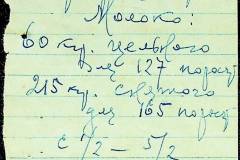 Молоко:
60 кг. цельного
для 127 порос
215 кг. снятого
для 165 порос
с 1/2 – 5/2